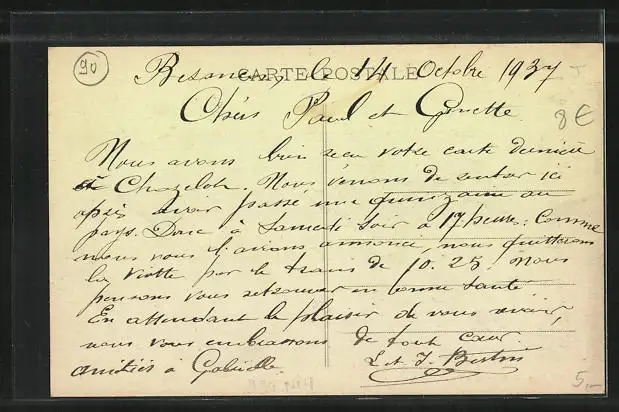 90
CARTE POSTALE
Besançon, le 14 Octobre 1937
Chers Paul et Ginette
8€
Nous avons bien reçu votre carte dernière
de Chazelot. Nous venons de rentrer ici
après avoir passé une quinzaine au
pays. Donc à Samedi soir à 17 heures. Comme
nous vous l'avions annoncé, nous quitterons
la Viotte par le train de 10.25. Nous
pensons vous retrouver en bonne santé
En attendant le plaisir de vous revoir,
nous vous embrassons de tout cœur
amitiés à Gabrielle.
L et J. Bertin
5.-